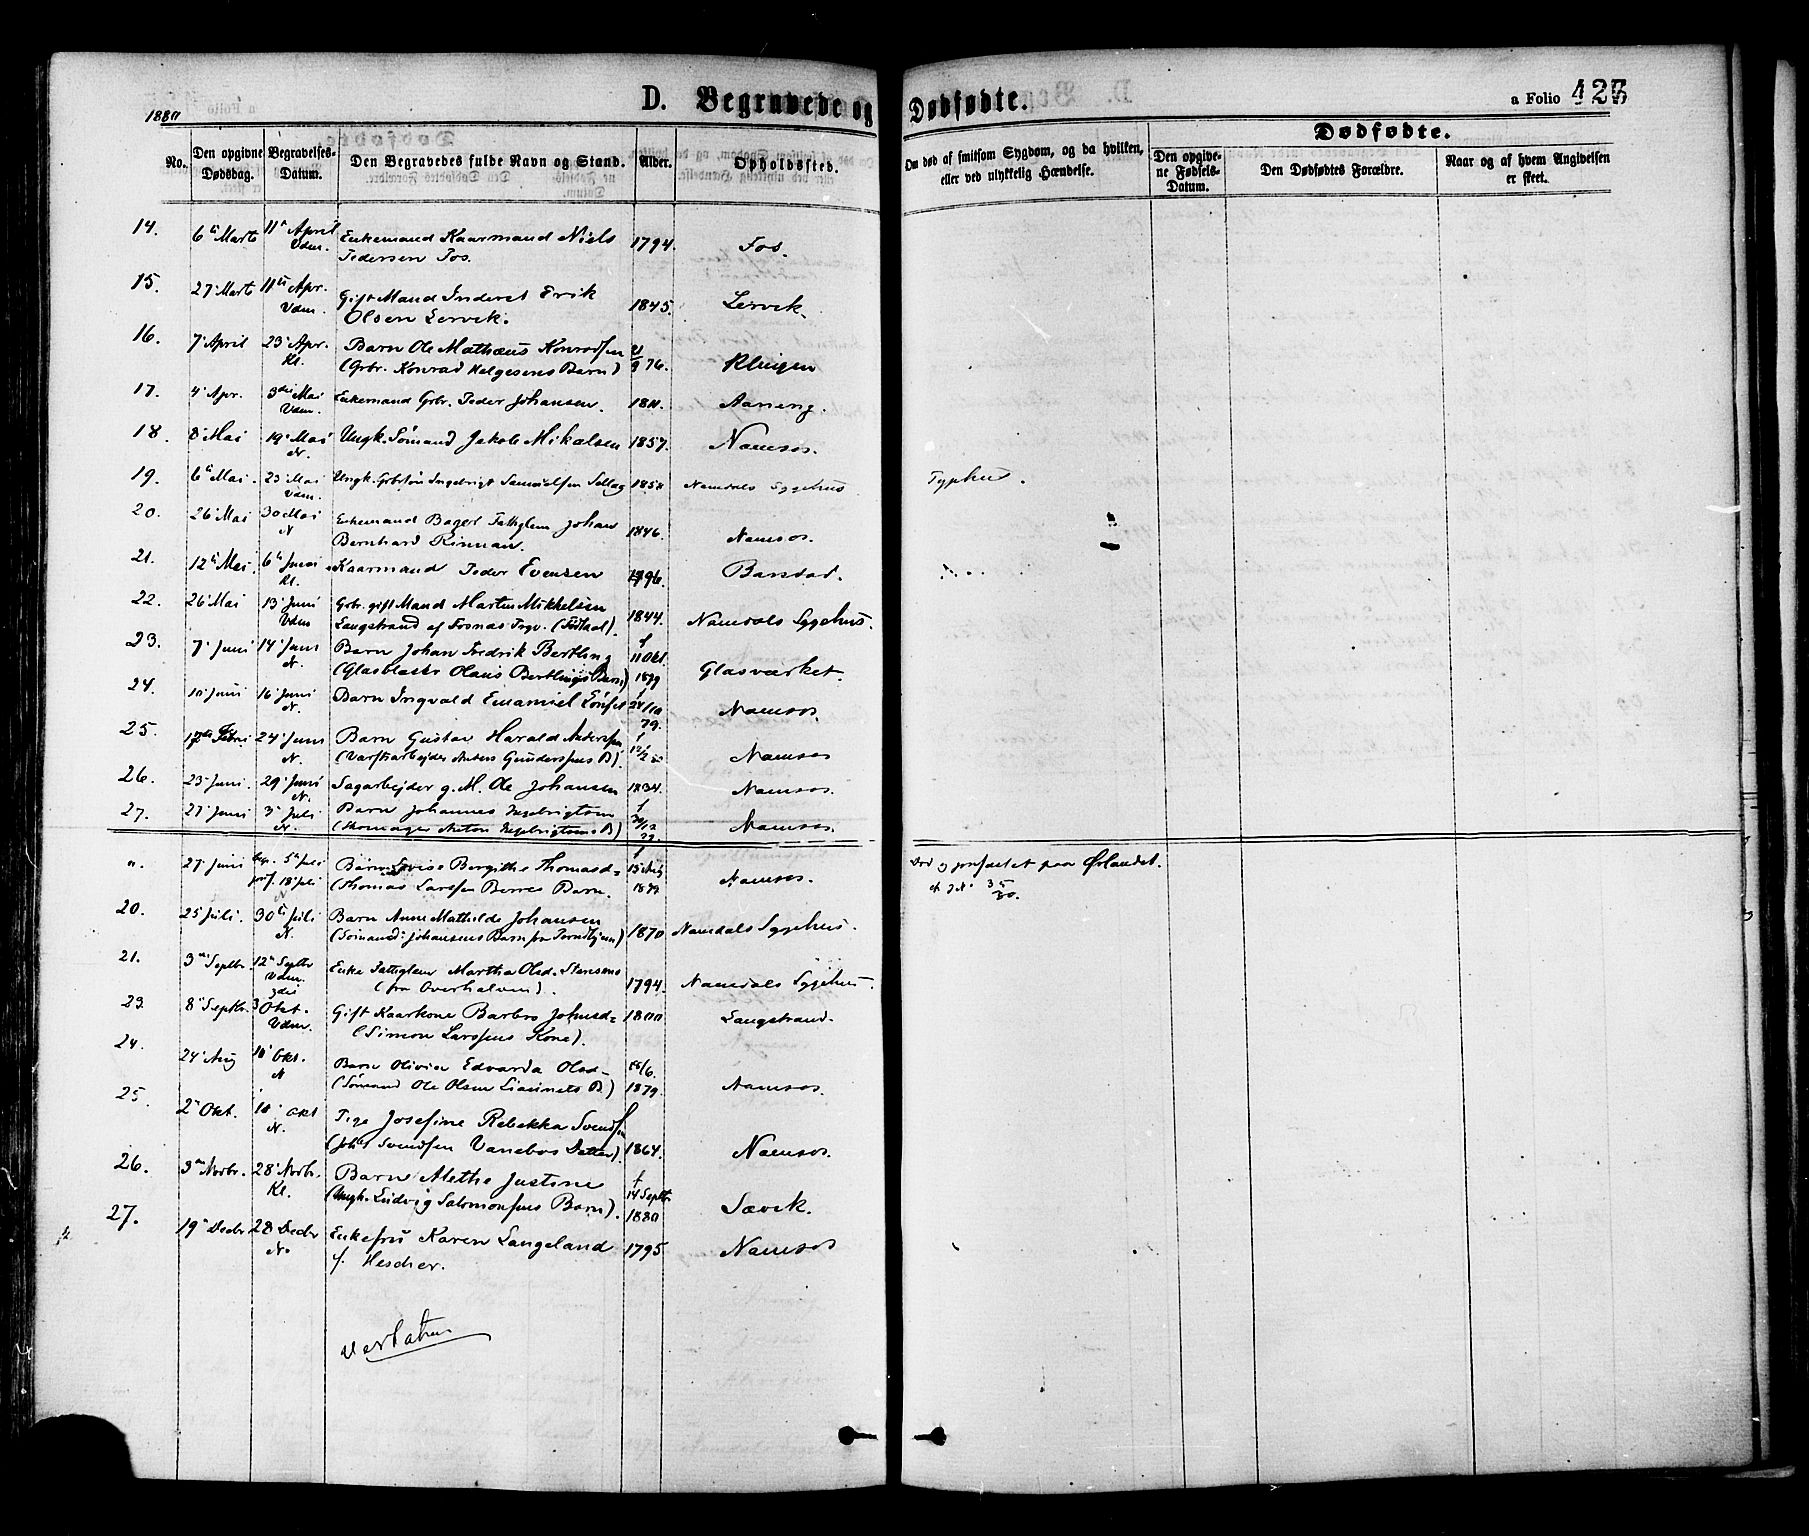 1880
D. Begravede og Dødfødte.
a Folio 427
No.
Den opgivne Dødsdag.
Begravelses-Datum.
Den Begravedes fulde Navn og Stand.
Alder.
Opholdssted.
Om død af smitsom Sygdom, og da hvilken, eller ved ulykkelig Hændelse.
Dødfødte.
Den opgivne Fødsels-Datum.
Den Dødfødtes Forældre.
Naar og af hvem Angivelsen er skeet.
14. 6te Marts 11te April Vdm. Enkemand Kaarmand Niels 1794. Fos.
Pedersen Fos.
15. 27 Marts 11te Apr. Vdm. Gift Mand Inderst Erik 1845. Lervik.
Olsen Lervik.
16. 7 April 23 Apr. Kl. Barn Ole Mathæus Konradsen 76. Klingen
(Grbr. Konrad Helgesens Barn)
17. 4 Apr. 3die Mai Vdm. Enkemand Grbr. Peder Johansen. 1811.
18. 8 Mai 19 Mai N. Ungk. Sømand Jakob Mikalsen 1857. Namsos.
19. 6te Mai. 23 Mai Vdm. Ungk. Ingebrigt Samuelsen 1858 Namdals Sygehus Typhus.
20. 26 Mai 30 Mai N Enkemand Bager Fattiglem Johan 1846. Namsos.
Bernhard Rinnan.
21. 12te Mai. 6te Juni Kl. Kaarmand Peder Evensen 1796. Barstad.
22. 26 Mai 13 Juni Vdm Grbr. gift Mand Morten Mikkelsen 1844. Namdals Sygehus.
Langstrand af Fosnæs
23. 7 Juni 14 Juni N. Barn Johan Fredrik Bertling f 11 Okt. 1879 Glasværket.
(Glasblæser Olaus Bertlings Barn)
24. 10 Juni 16 Juni N. Barn Ingvald Emanuel f 24/10 79. Namsos.
25. 24 Juni N. Barn Gustav Harald Anderssen. Namsos
(Værftsarbejder Anders Gunderssens B)
26. 23 Juni. 29 Juni N. Sagarbejder g. M. Ole Johansen 1834. Namsos.
27. 27 Juni 3 Juli N. Barn Johannes Ingebrigtsen Namsos.
(Skomager Anton Ingebrigtsens B)
27 Juni 5te Juli 18 Juli Barn Lovise Bergithe Thomasd= f 15 Aug 1879 Namsos. Død og jordfæstet paa Ørlandet.
(Thomas Larssen Berres Barn.
20. 25 Juli. 30te Juli N. Barn Anne Mathilde Johansen 1870 Namdals Sygehus.
(Sømand Johansens Barn fra Trondhjem)
21. 3die Septbr. 12te Septbr Vdm. Enke Fattiglem Martha Olsd. Stensens 1794. Namdals Sygehus.
(fra Overhalven).
23. 8 Septbr. 3die Okt. Vdm. Gift Kaarkone Barbro Johnsd= 1800 Langstrand.
(Simon Larssens Kone).
24. 24 Aug 10 Okt. N Barn Olivia Edvarda Olsd- 1879. Namsos.
(Sømand Ole Olsen B)
25. 2 Okt. 10 Okt N. Pige Josefine Rebekka Svendsen 1864. Namsos.
(Johs Svendsen Vanebos Datter).
26. 3die Novbr. 28 Novbr. Kl. Barn Alethe Justine f 14 Septbr 1880 Sævik.
(Ungk. Ludvig Salomonsens Barn).
27. 19 Decbr 28 Decbr N. Enkefru Karen Langeland 1795 Namsos
f. Hescher.